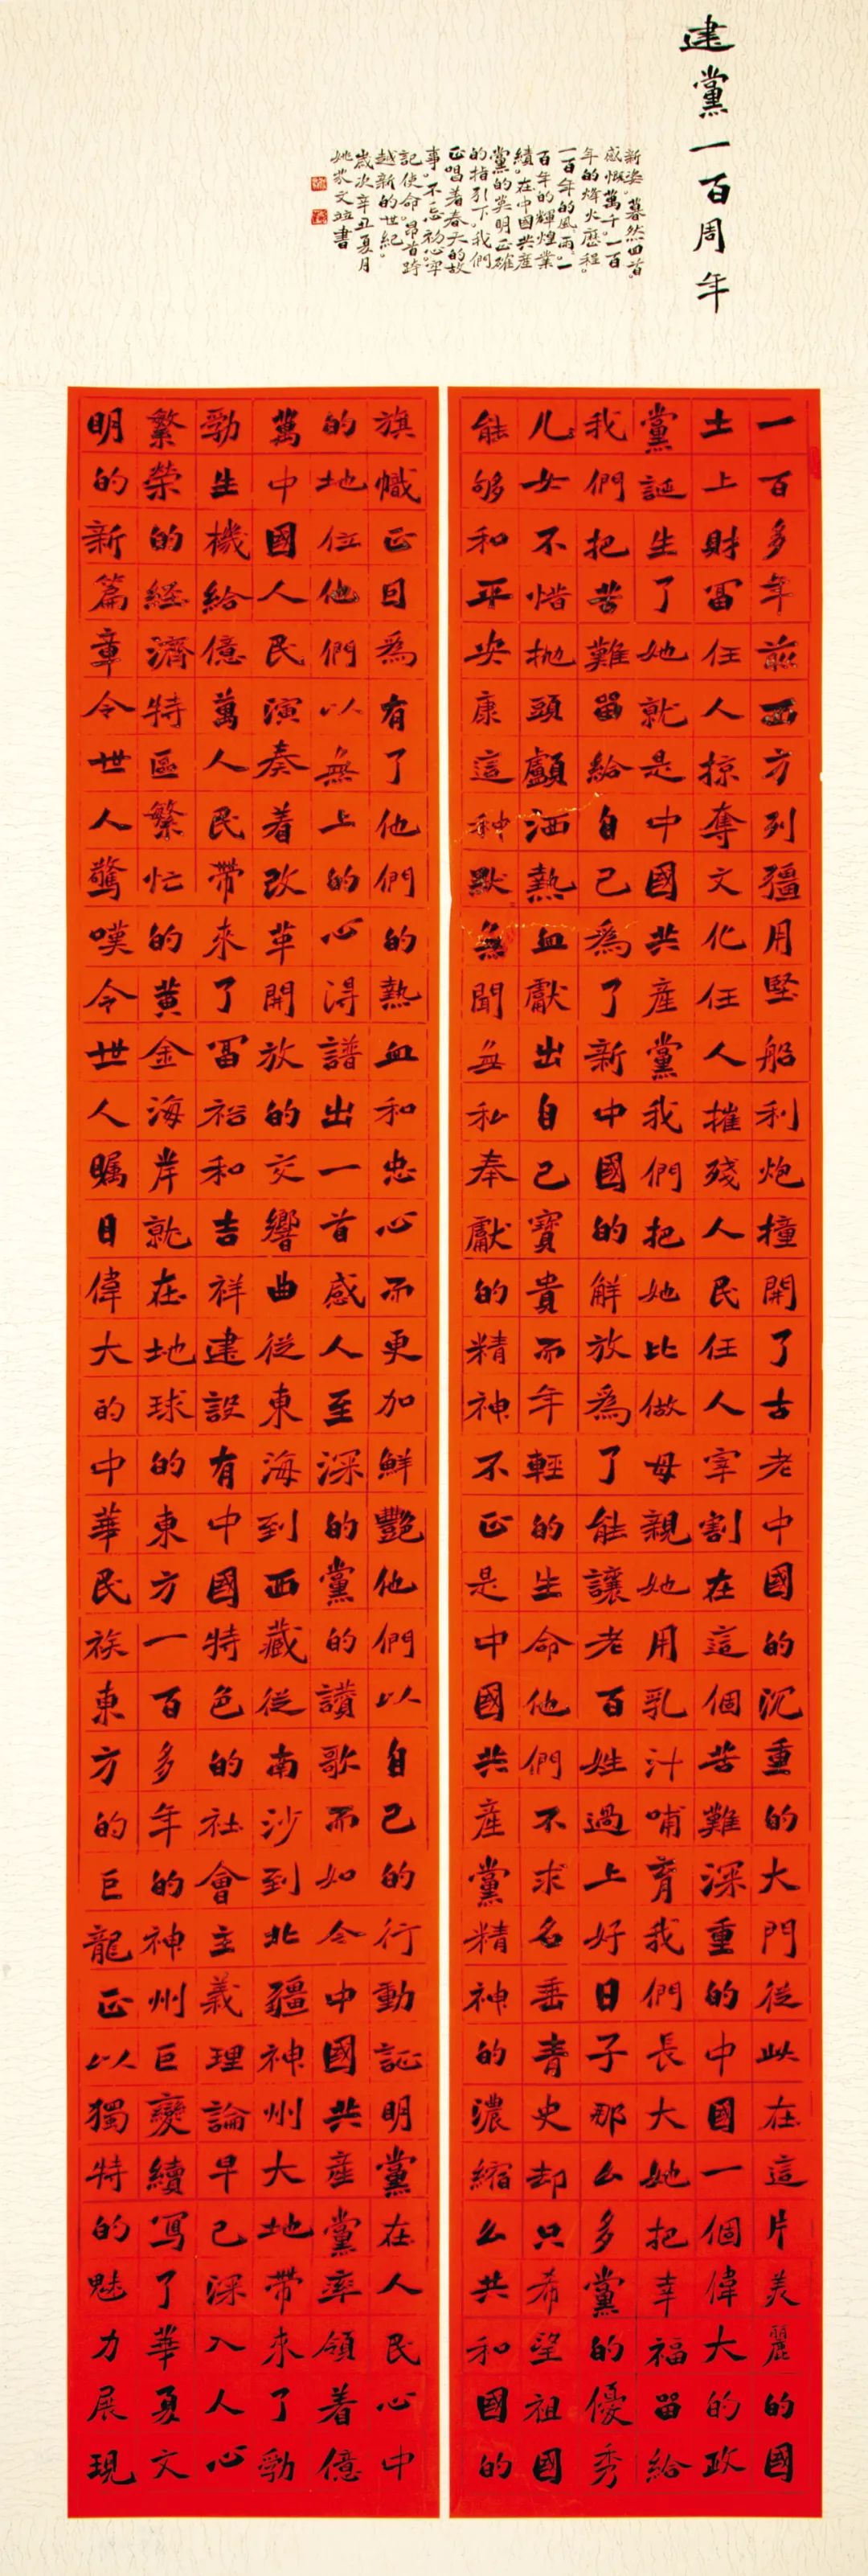 建黨一百周年
一百多年前西方列疆用堅船利炮撞開了古老中國的沉重的大門從此在這片美麗的國
土上財富任人掠奪文化任人摧殘人民任人宰割在這個苦難深重的中國一個偉大的政
黨誕生了她就是中國共産黨我們把她比做母親她用乳汁哺育我們長大她把幸福留給
我們把苦難留給自己為了新中國的解放為了能讓老百姓過上好日子那么多黨的優秀
儿女不惜抛頭顱洒熱血獻出自己寶貴而年輕的生命他們不求名垂青史却只希望祖國
能够和平安康這种默無聞無私奉獻的精神不正是中國共産黨精神的濃縮么共和國的
旗幟正因為有了他們的熱血和忠心而更加鮮艷他們以自己的行動証明黨在人民心中
的地位他們以無上的心得譜出一首感人至深的黨的讚歌而如今中國共産黨率領着億
萬中國人民演奏着改革開放的交響曲從東海到西藏從南沙到北疆神州大地帶來了勁
勁生機給億萬人民帶來了富裕和吉祥建設有中國特色的社會主義理論早已深入人心
繁榮的経濟特區繁忙的黄金海岸就在地球的東方一百多年的神州巨變續寫了華夏文
明的新篇章令世人驚嘆令世人矚目偉大的中華民族東方的巨龍正以獨特的魅力展現
新姿。暮然回首。
感慨萬千。一百
年的烽火歷程。
一百年的風雨。一
百年的輝煌業
績。在中國共産
黨的英明正確
的指引下。我們
正唱着春天的故
事。不忘初心牢
記使命。昂首跨
越新的世紀。
歲次辛丑夏月
姚文竝書